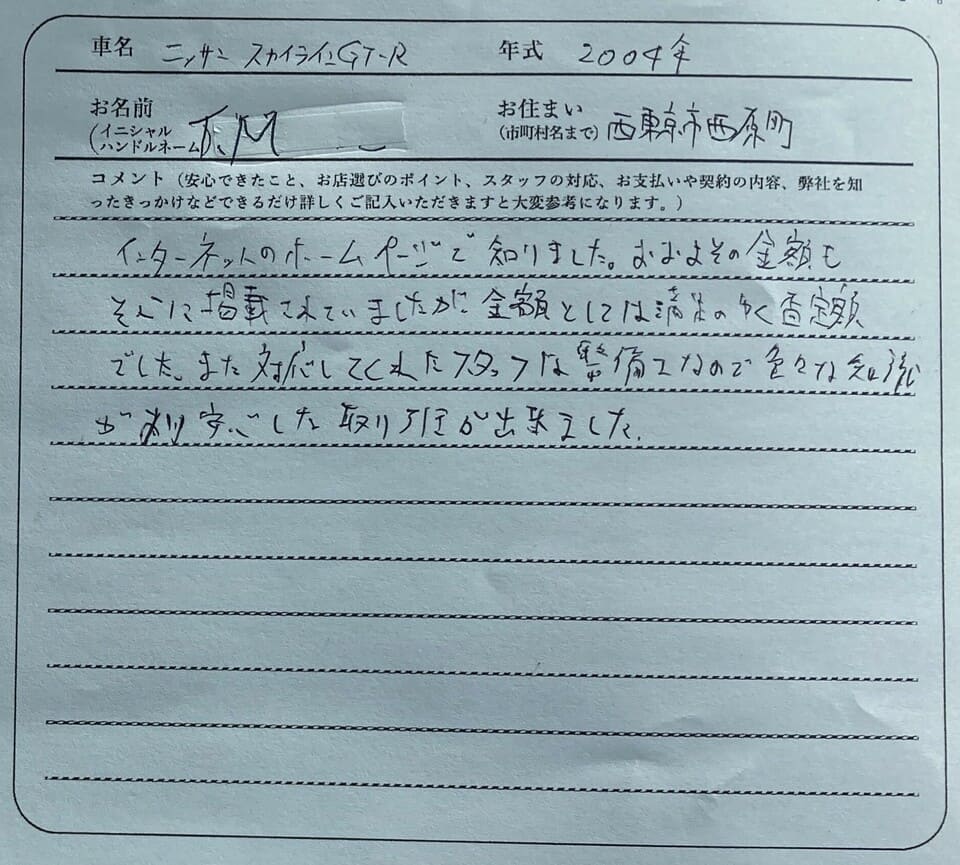 車名 ニッサン スカイラインGT-R 年式 2004年
お名前 お住まい
(イニシャル (市町村名まで) 西東京市西原町
ハンドルネーム K.M
コメント（安心できたこと、お店選びのポイント、スタッフの対応、お支払いや契約の内容、弊社を知
ったきっかけなどできるだけ詳しくご記入いただきますと大変参考になります。）
インターネットのホームページで知りました。おおよその金額も
そこに掲載されていましたが金額としては満足のゆく査定額
でした。また対応してくれたスタッフは整備士なので色々な知識
があり安心した取り引きが出来ました。